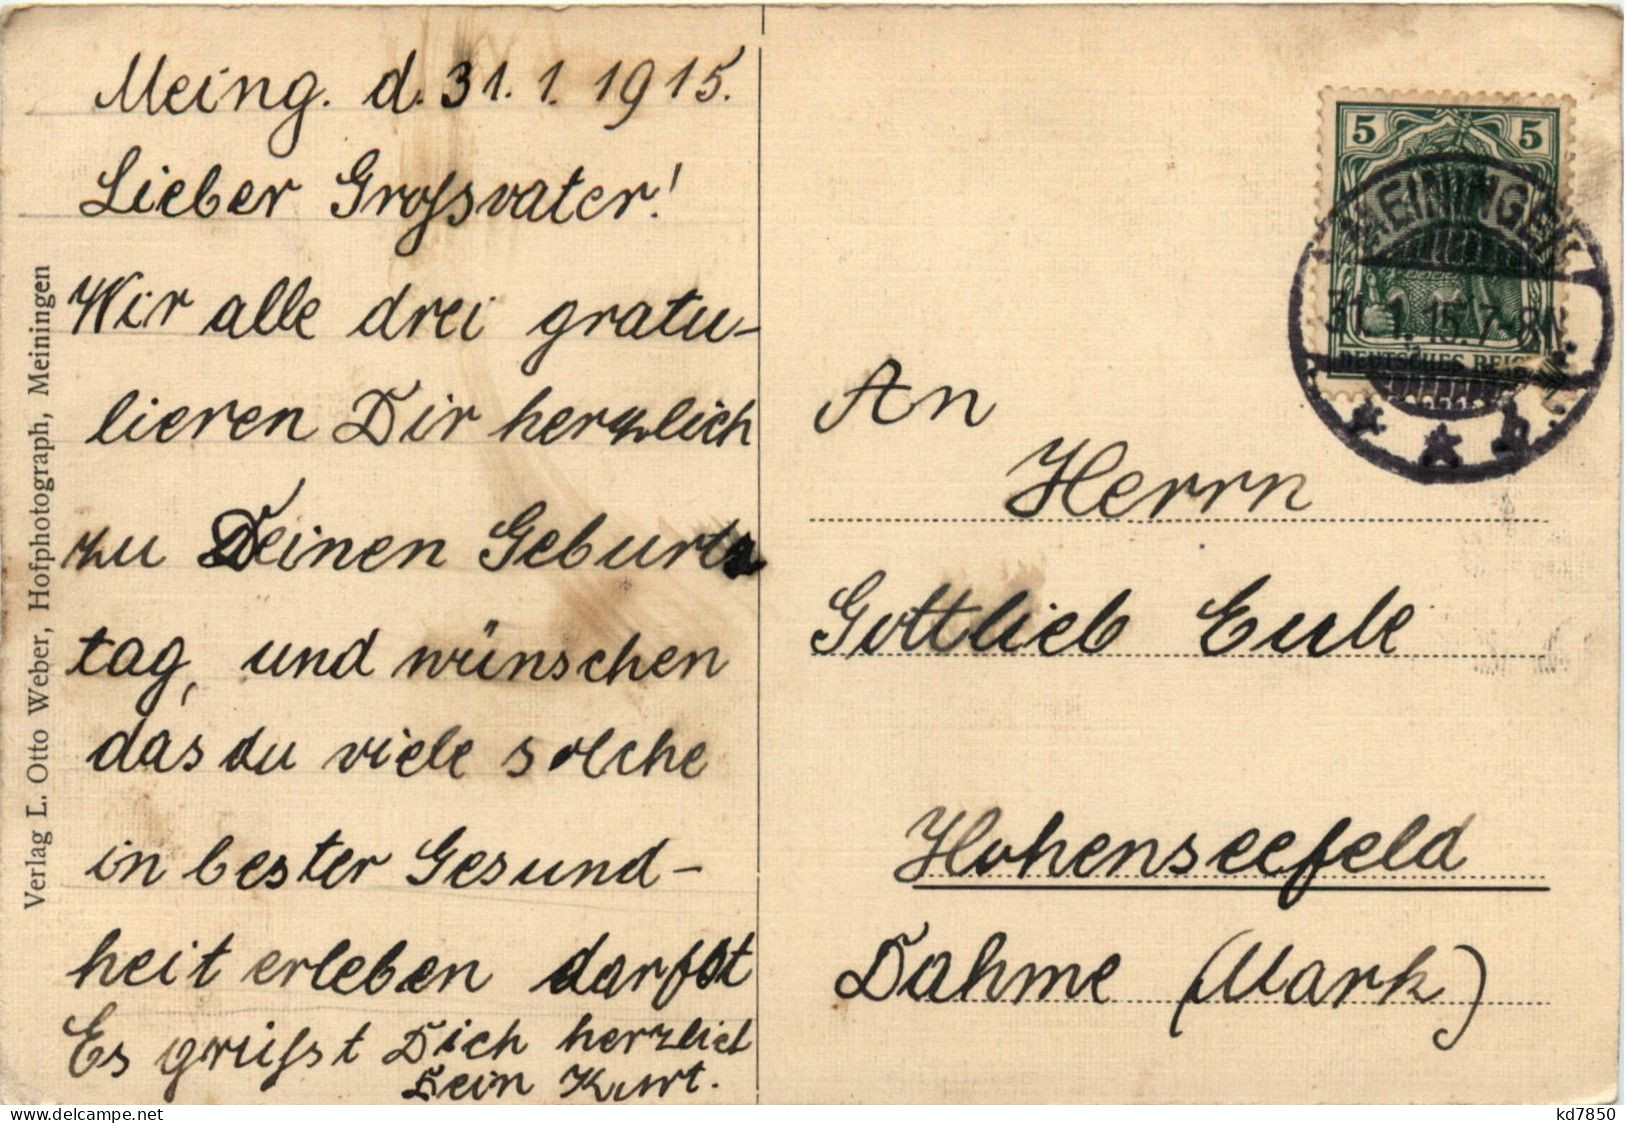 Meing. d. 31. 1. 1915.
Lieber Grofsvater!
Wir alle drei gratu-
lieren Dir herzlich
zu Deinen Geburts
tag, und wünschen
das du viele solche
in bester Gesund-
heit erleben darfst
Es grüfst Dich herzlich
Dein Kurt.
Verlag L. Otto Weber, Hofphotograph, Meiningen
5 5
DEUTSCHES REICH
MEININGEN
31. 1. 15. 7-8 N.
* * b.
An
Herrn
Gottlieb Eule
Hohenseefeld
Dahme (Mark)
delcampe.net
kd7850